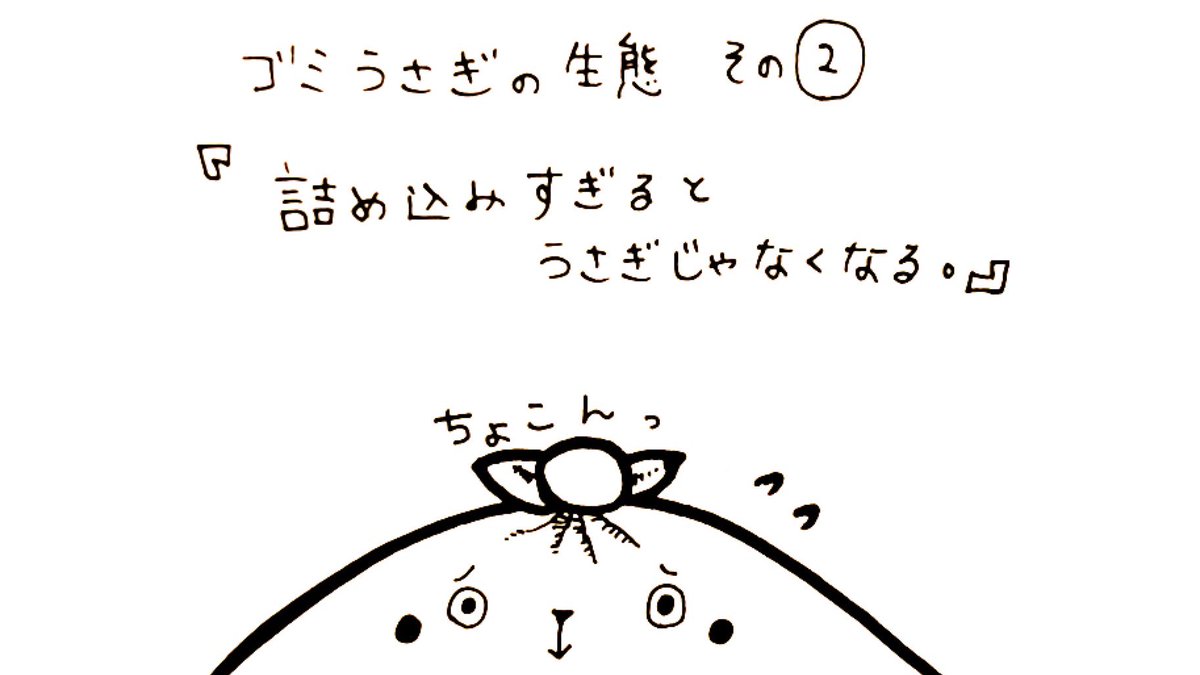 ゴミうさぎの生態 その②
『詰め込みすぎると
うさぎじゃなくなる。』
ちょこんっ